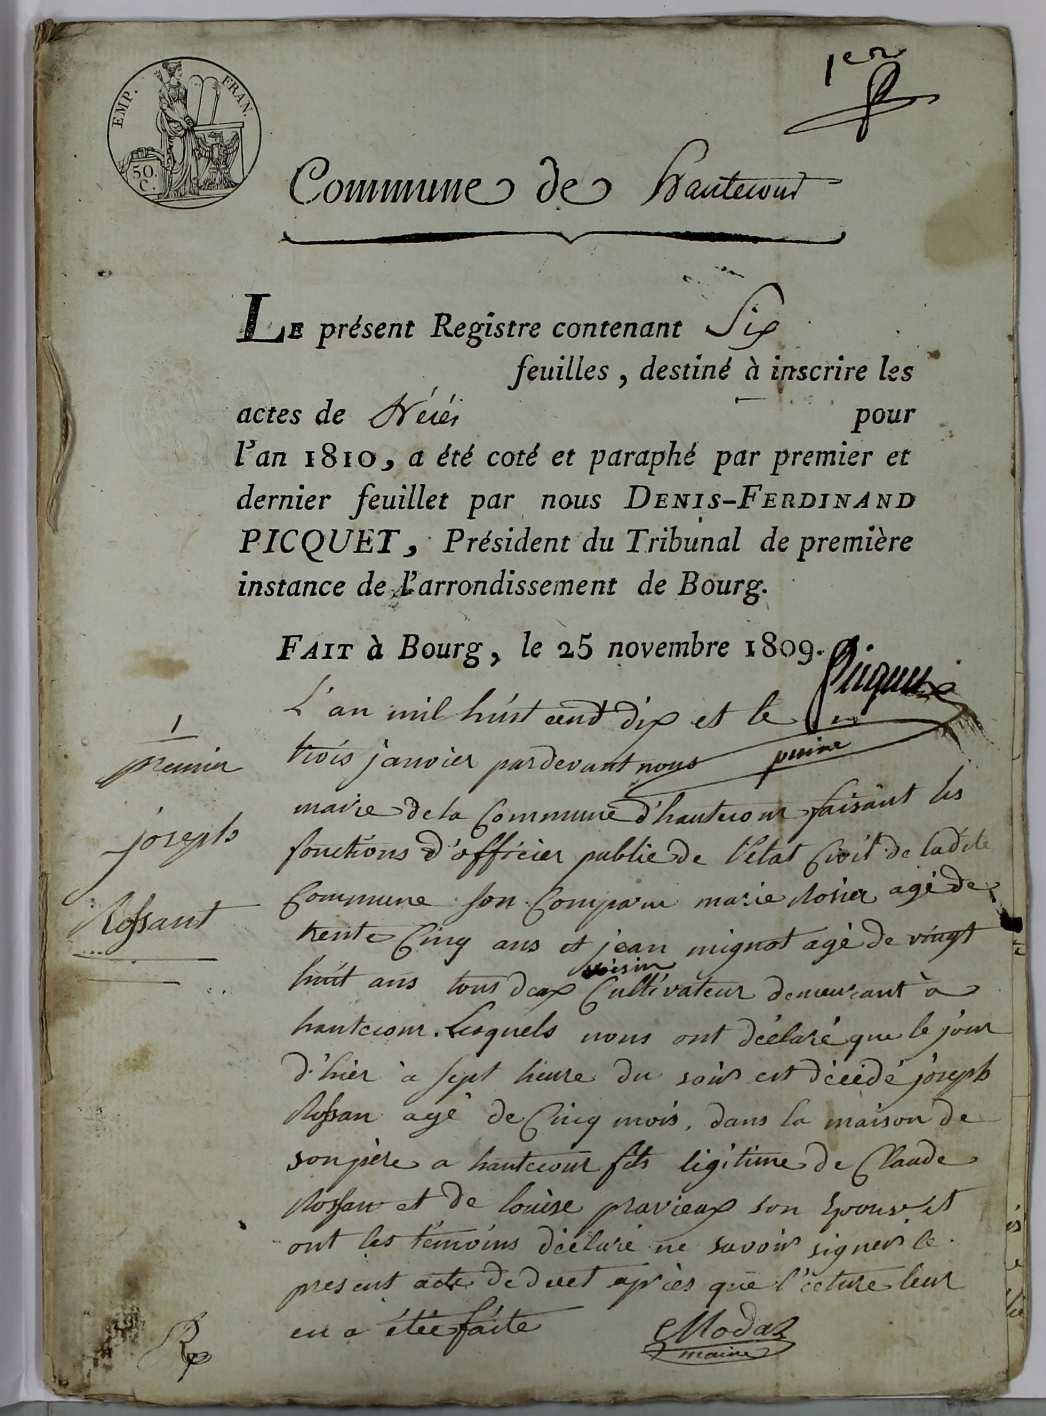 EMP. FRAN.
50.
C.
1er
Commune de hautecour
LE présent Registre contenant Six
feuilles, destiné à inscrire les
actes de Décès pour
l'an 1810, a été coté et paraphé par premier et
dernier feuillet par nous DENIS-FERDINAND
PICQUET, Président du Tribunal de première
instance de l'arrondissement de Bourg.
FAIT à Bourg, le 25 novembre 1809.
Picquet
1
premier
joseph
Rossant
L'an mil huit cend dix et le
trois janvier pardevant nous
maire de la Commune d'hautecour faisant les
fonctions d'officier public de l'état Civil de ladite
Commune son Comparu marie Rosier agé de
trente Cinq ans et jean mignot agé de vingt
huit ans tous deux voisin Cultivateur demeurant à
hautecour. Lesquels nous ont déclaré que le jour
d'hier à sept heure du soir est décédé joseph
Rossan agé de Cinq mois, dans la maison de
son père a hautecour fils légitime de Claude
Rossan et de louise pravieux son Epouse et
ont les témoins déclaré ne savoir signer le
present acte de decet après que l'ecture leur
en a étée faite
Modas
maire